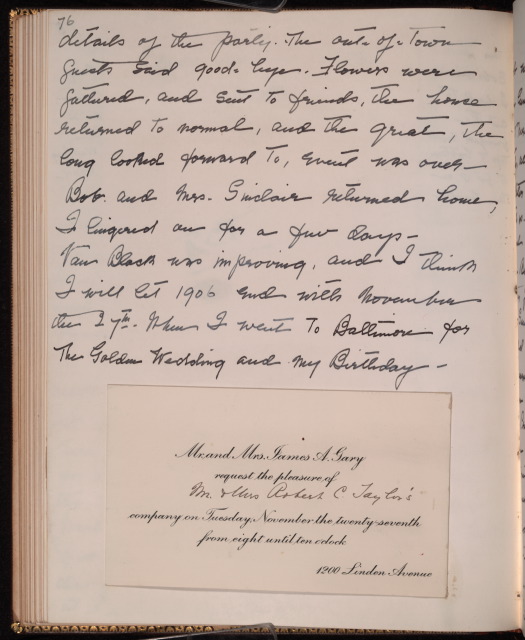 76
details of the party. The out-of-Town
guests said good-bye. Flowers were
gathered, and sent to friends, the house
returned to normal, and the great, the
long looked forward to, event was over—
Bob. and Mrs. Sinclair returned home,
I lingered on for a few days—
Van Black was improving, and I think
I will let 1906 end with November
the 27th. When I went To Baltimore for
The Golden Wedding and my Birthday—
Mr. and Mrs. James A. Gary
request the pleasure of
Mr. & Mrs Robert C Taylor's
company on Tuesday, November the twenty-seventh
from eight until ten o'clock
1200 Linden Avenue